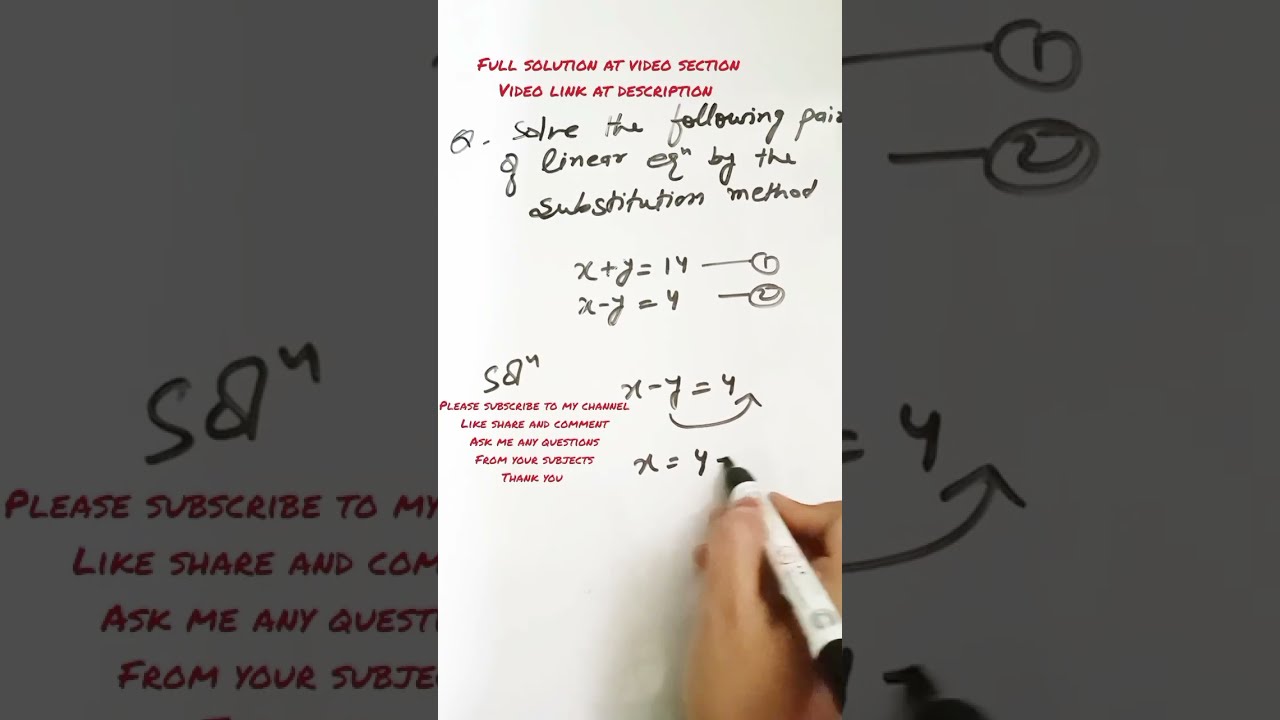 Full solution at video section
Video link at description
Q. Solve the following pair
of linear eqⁿ by the
substitution method
x+y=14 — ①
x-y=4 — ②
Solⁿ
x-y=4
Please subscribe to my channel
Like share and comment
Ask me any questions
From your subjects
Thank you
x=4